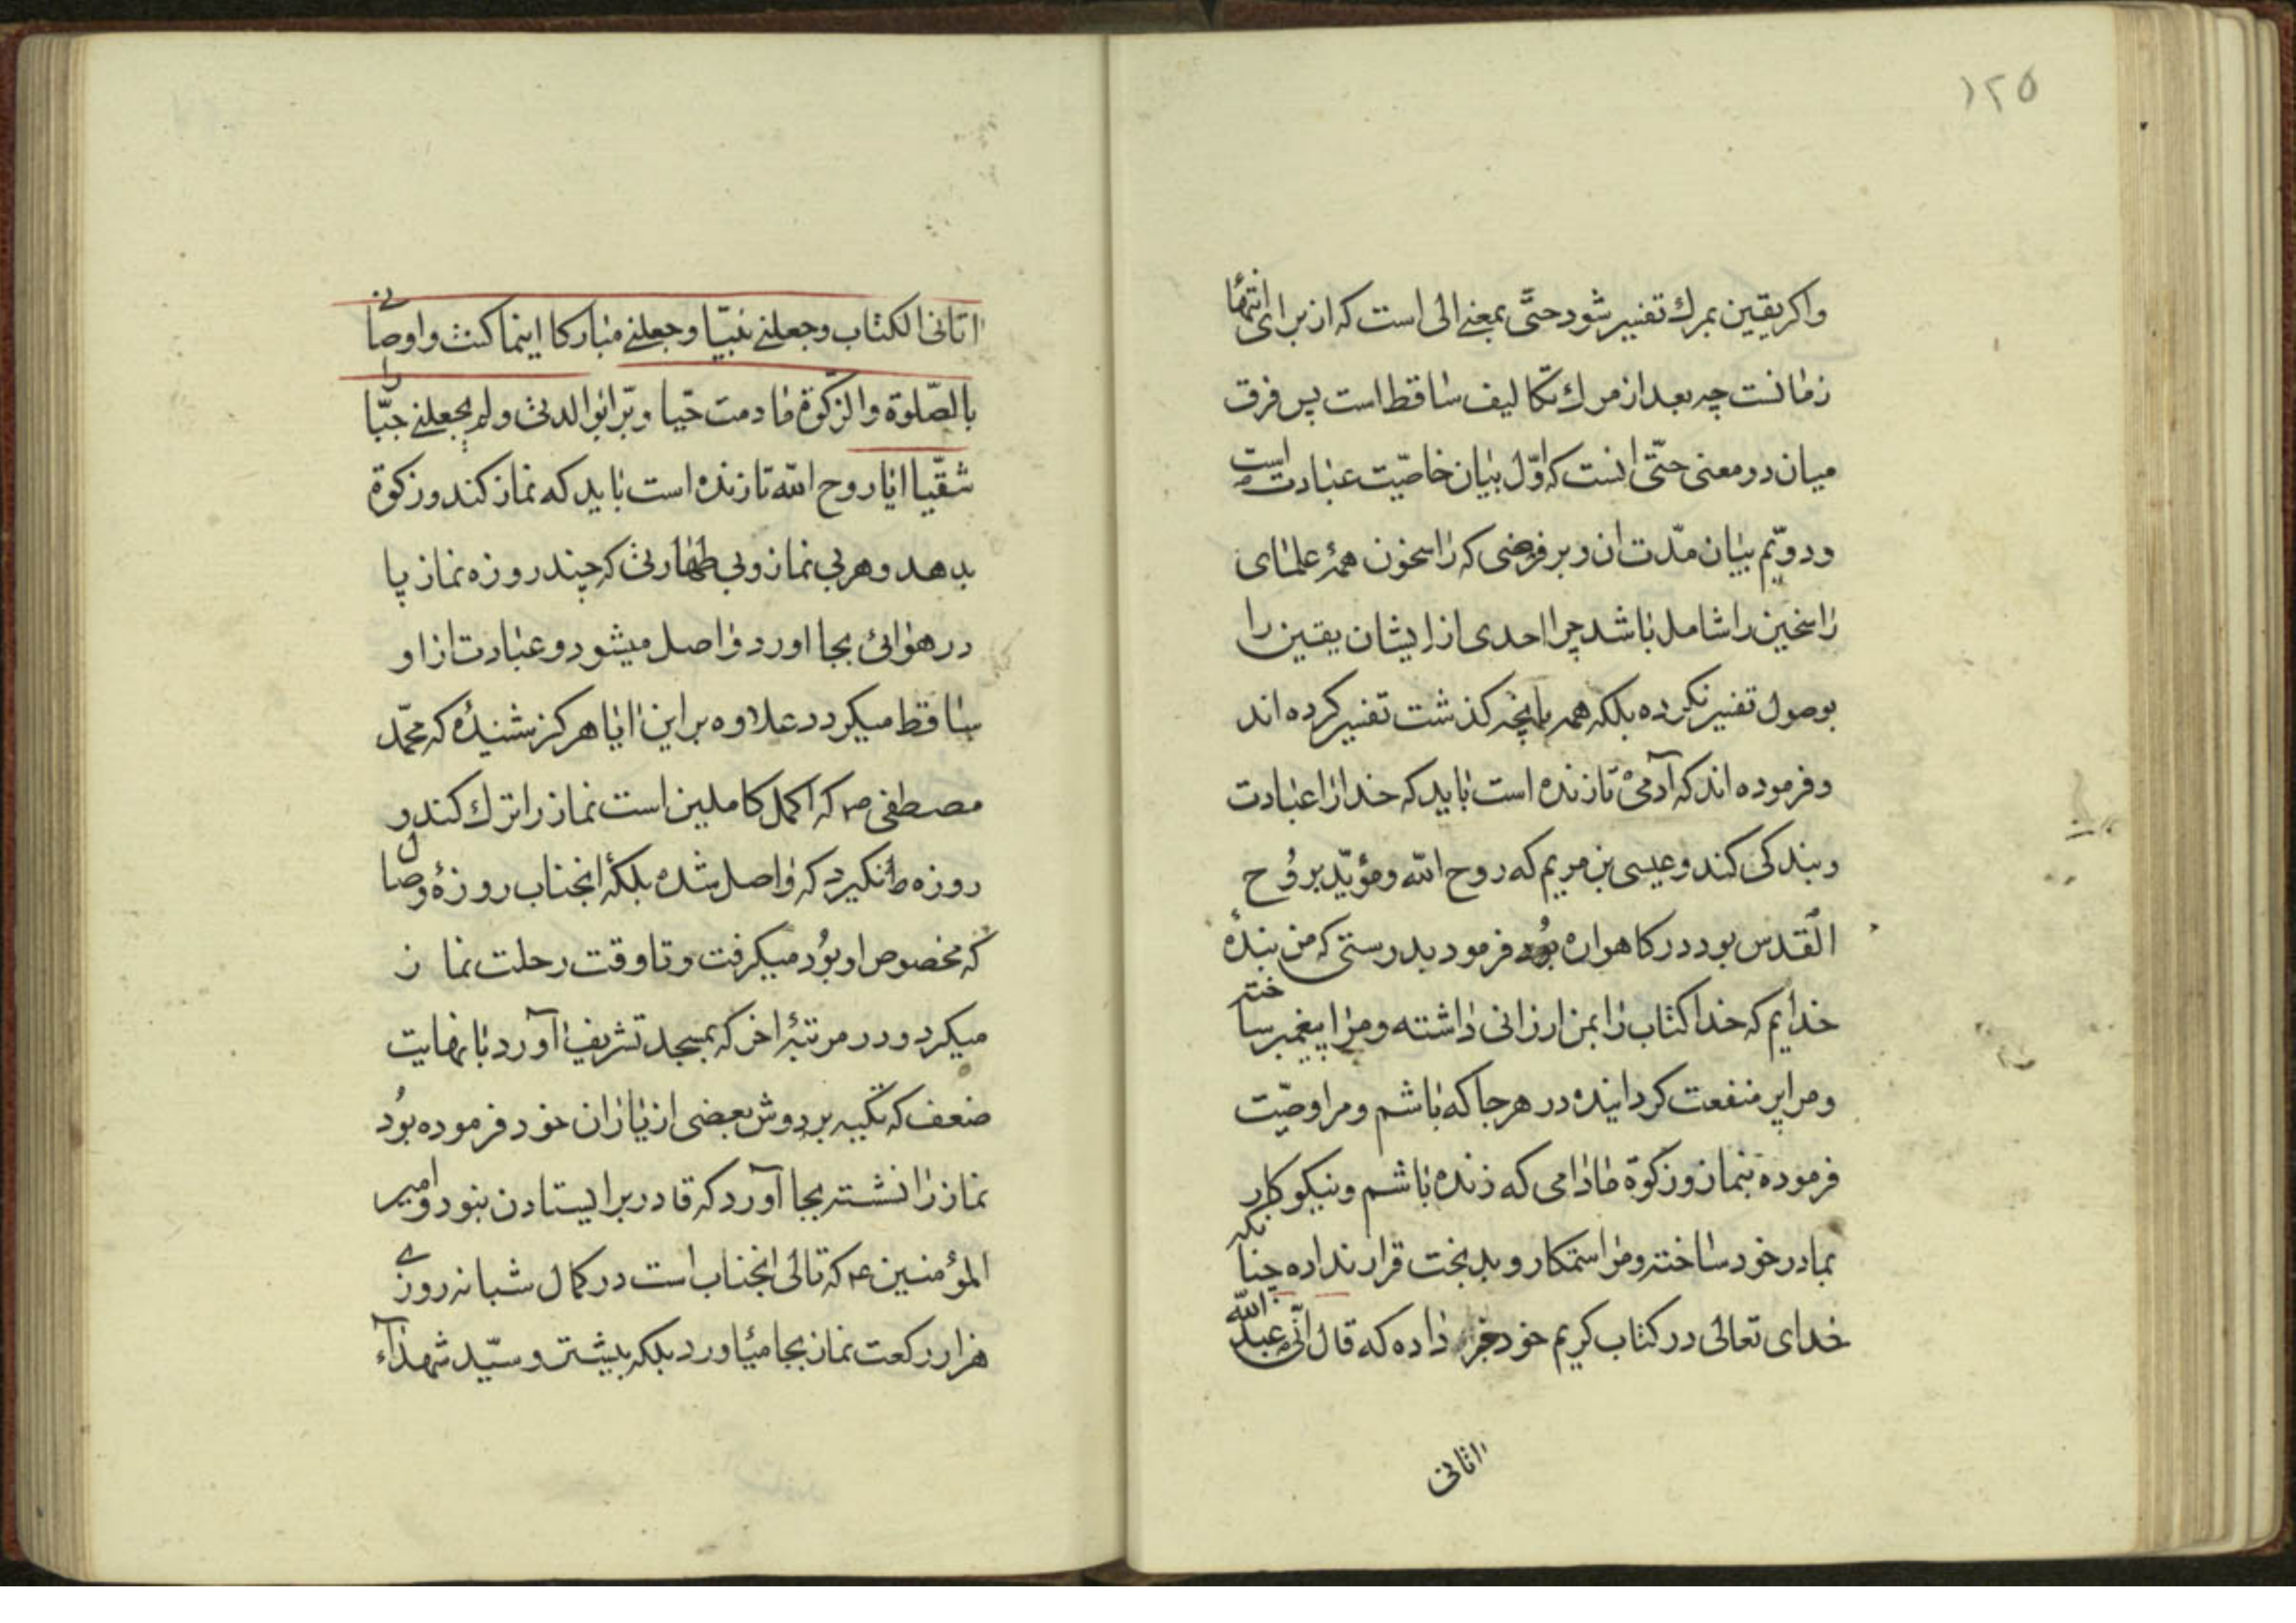 ۱۲۵
واکر یقین بمرك تفسیر شود حتّی بمعنی الی است که از برای انتهای
زمانست چه بعد از مرك تکالیف ساقط است پس فرق
میان دو معنی حتّی انست که اوّل بیان خاصّیت عبادت است
و دویّم بیان مدّت ان و بر فرضی که راسخون همهٔ علمای
راسخین را شامل باشد چرا احدی از ایشان یقین را
بوصول تفسیر نکرده بلکه همه بانچه کذشت تفسیر کرده اند
و فرموده اند که آدمی تا زنده است باید که خدا را عبادت
و بندکی کند و عیسی بن مریم که روح الله و مؤیّد بروُح
القدس بود در کاهواره بُود فرمود بدرستی که من بندهٔ
خدایم که خدا کتاب را بمن ارزانی داشته و مرا پیغمبر ساخته
و مرا پر منفعت کردانیده در هر جا که باشم و مرا وصّیت
فرموده بنماز و زکوة مادامی که زنده باشم و نیکو کار
بمادر خود ساخته و مرا ستمکار و بدبخت قرار نداده چنانکه
خدای تعالی در کتاب کریم خود خبر داده که قال انّی عبد الله
اتانی
اتانی الکتاب وجعلنی نبیّا وجعلنی مبارکا اینما کنت واوصانی
بالصّلوة والزکوة ما دمت حیّا وبرّا بوالدتی ولم یجعلنی جبّارا
شقیّا ایا روح الله تا زنده است باید که نماز کند و زکوة
بدهد و هر بی نماز و بی طهارتی که چند روزه نماز پا
در هوائی بجا اورد واصل میشود و عبادت از او
ساقط میکردد علاوه بر این ایا هرکز شنیدهٔ که محمّد
مصطفی ص که اکمل کاملین است نماز را ترك کند و
روزه را نکیرد که واصل شده بلکه انجناب روزهٔ وصال
که مخصوص او بوُد میکرفت و تا وقت رحلت نماز
میکرد و در مرتبهٔ اخر که بمسجد تشریف آورد با نهایت
ضعف که تکیه بر دوش بعضی از یاران خود فرموده بوُد
نماز را نشسته بجا آورد که قادر بر ایستادن نبود و امیر
المؤمنین ع که تالی انجناب است در کمال شبانه روزی
هزار رکعت نماز بجا میاورد بلکه بیشتر و سیّد شهدآء